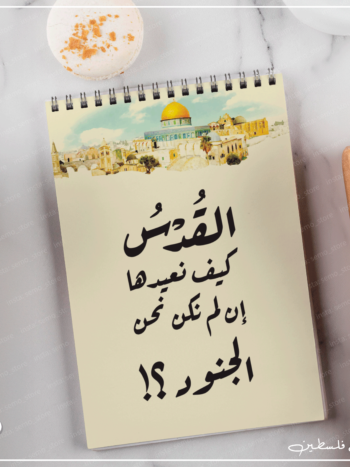 القُدْسُ
كيف نعيدها
إن لم نكن نحن
الجنود ؟!
فلسطين